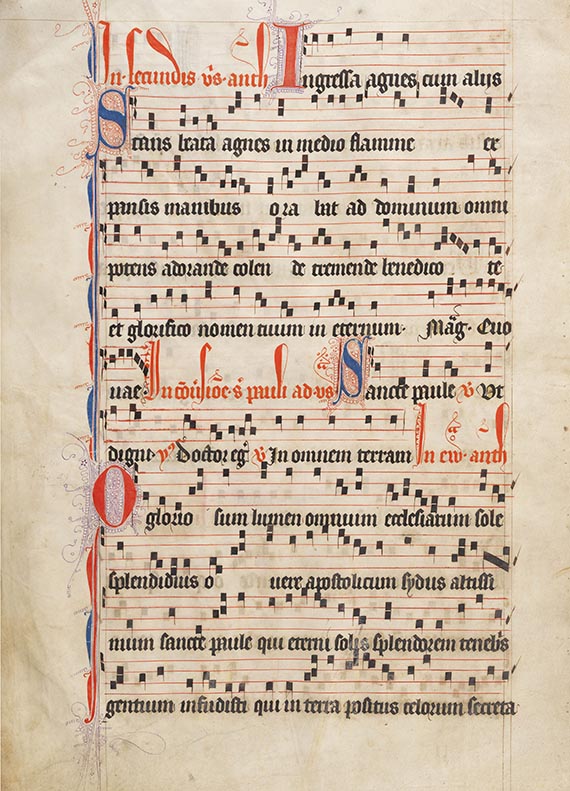 In secundis vs anth Ingressa agnes cum alijs
Stans beata agnes in medio flamme ex
pansis manibus ora bat ad dominum omni
potens adorande colen de tremende benedico te
et glorifico nomen tuum in eternum. Mag. Euo
uae In cōūsiōe s pauli ad vs Sancte paule V Vt
digni. Doctor eg V In omnem terram In ew. anth
O glorio sum lumen omnium ecclesiarum sole
splendidius o vere apostolicum sydus altissi
mum sancte paule qui eterni solis splendorem tenebs
gentium infudisti qui in terra positus celorum secreta